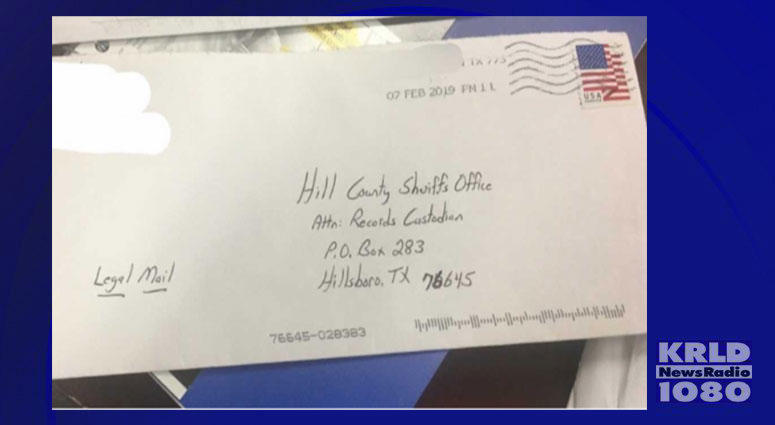 TX 773
07 FEB 2019 PM 1 L
USA
Hill County Shuiffs Office
Attn: Records Custodian
P.O. Box 283
Hillsboro, TX 76645
Legal Mail
76645-028383
KRLD
NewsRadio
1080